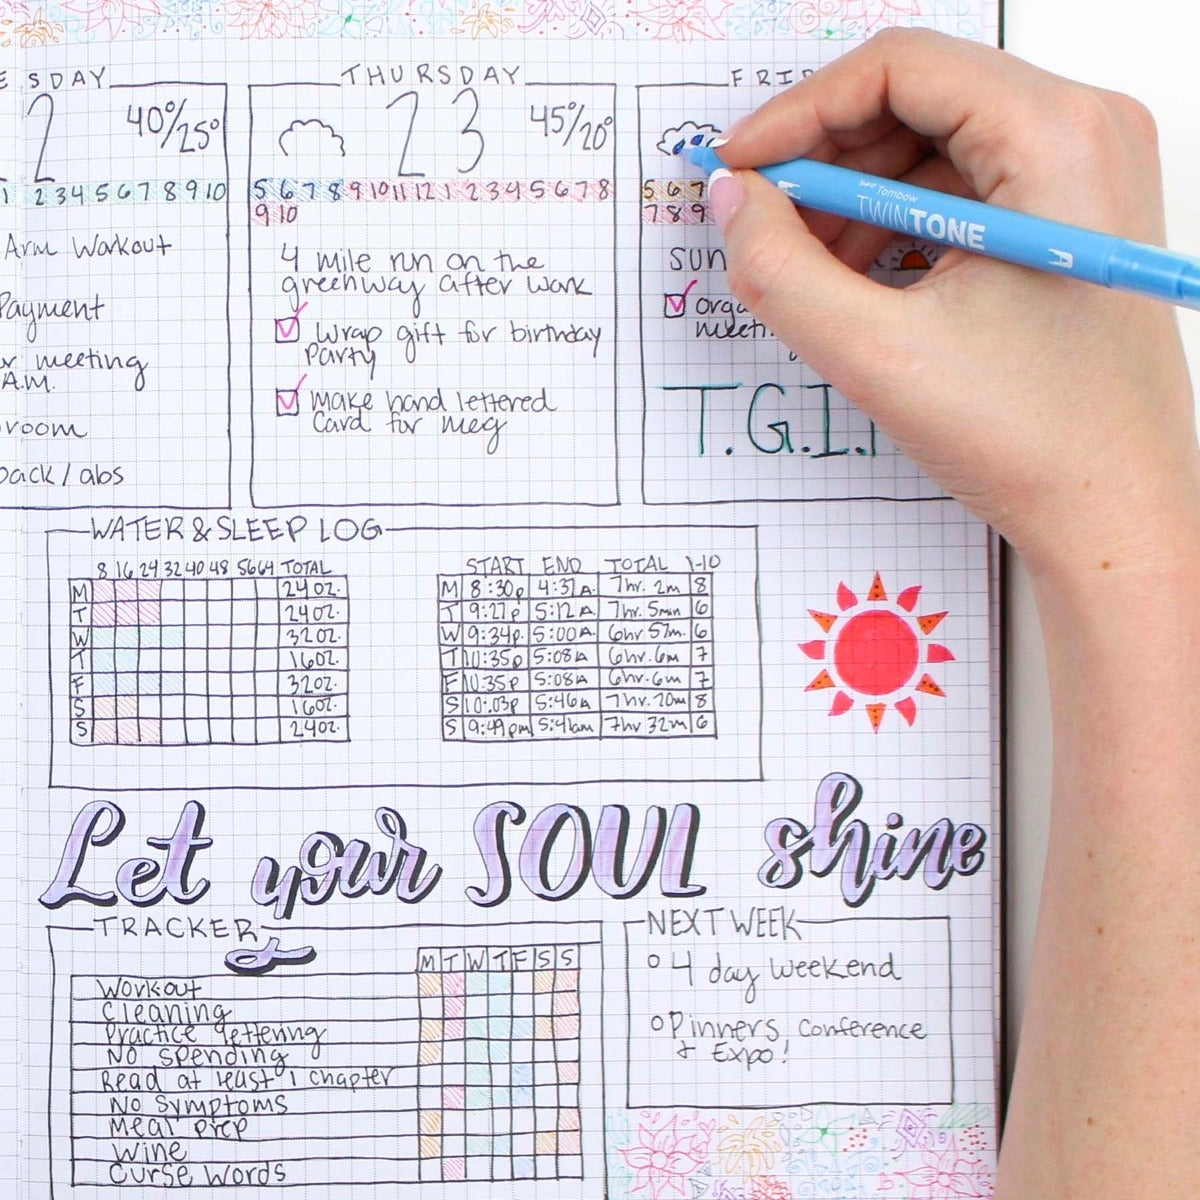 ESDAY
2 40°/25°
1 2 3 4 5 6 7 8 9 10
Arm Workout
Payment
meeting
A.M.
room
back / abs
THURSDAY
23 45°/20°
5 6 7 8 9 10 11 12 1 2 3 4 5 6 7 8
9 10
4 mile run on the
greenway after work
Wrap gift for birthday
Party
make hand lettered
Card for Meg
FRI
5 6 7
7 8 9
SUN
orga
meeti
T.G.I.
Tombow
TWINTONE
WATER & SLEEP LOG
8 16 24 32 40 48 56 64 TOTAL
M 24 oz.
T 24 oz.
W 32 oz.
T 16 oz.
F 32 oz.
S 16 oz.
S 24 oz.
START END TOTAL 1-10
M 8:30p 4:37A 7hr. 2m 8
T 9:27p 5:12A 7hr. 5min 6
W 9:34p. 5:00A. 6hr 57m. 6
T 10:35p 5:08A 6hr. 6m 7
F 10:35P 5:08A 6hr. 6m 7
S 10:.03p 5:46A 7hr. 20m 8
S 9:49pm 5:41am 7hr 32m 6
Let your SOUL shine
TRACKER
M T W T F S S
Workout
Cleaning
Practice lettering
No spending
Read at least 1 chapter
No Symptoms
Meal prep
Wine
Curse Words
NEXT WEEK
4 day weekend
Pinners Conference
+ Expo!